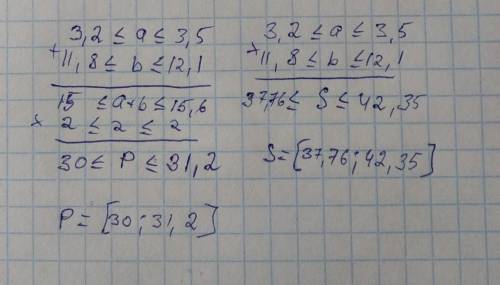 3,2 ≤ a ≤ 3,5
+ 11,8 ≤ b ≤ 12,1
15 ≤ a+b ≤ 15,6
× 2 ≤ 2 ≤ 2
30 ≤ P ≤ 31,2
P = [30; 31,2]
3,2 ≤ a ≤ 3,5
× 11,8 ≤ b ≤ 12,1
37,76 ≤ S ≤ 42,35
S = [37,76; 42,35]